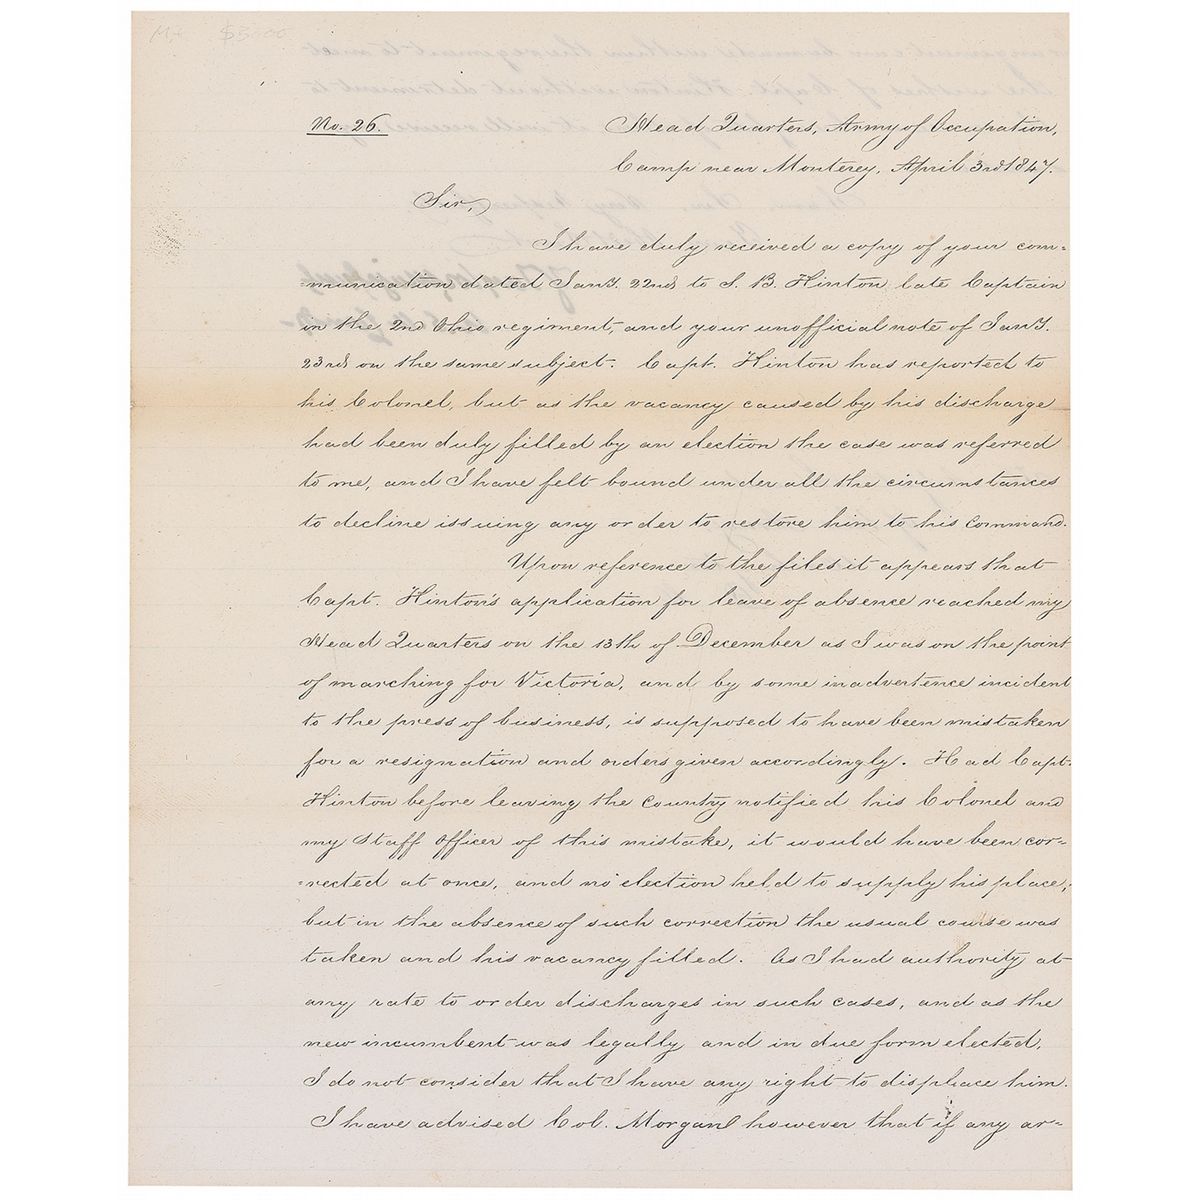 No. 26.
Head Quarters, Army of Occupation,
Camp near Monterey, April 3rd 1847.
Sir,
I have duly received a copy of your com=
=munication dated Jany. 22nd to S. B. Hinton late Captain
in the 2nd Ohio regiment, and your unofficial note of Jany.
23rd on the same subject. Capt. Hinton has reported to
his Colonel, but as the vacancy caused by his discharge
had been duly filled by an election the case was referred
to me, and I have felt bound under all the circumstances
to decline issuing any order to restore him to his command.
Upon reference to the files it appears that
Capt. Hinton's application for leave of absence reached my
Head Quarters on the 13th of December as I was on the point
of marching for Victoria, and by some inadvertence incident
to the press of business, is supposed to have been mistaken
for a resignation and orders given accordingly. Had Capt.
Hinton before leaving the country notified his Colonel and
my Staff Officer of this mistake, it would have been cor=
=rected at once, and no election held to supply his place,
but in the absence of such correction the usual course was
taken and his vacancy filled. As I had authority at
any rate to order discharges in such cases, and as the
new incumbent was legally and in due form elected,
I do not consider that I have any right to displace him.
I have advised Col. Morgan however that if any ar=